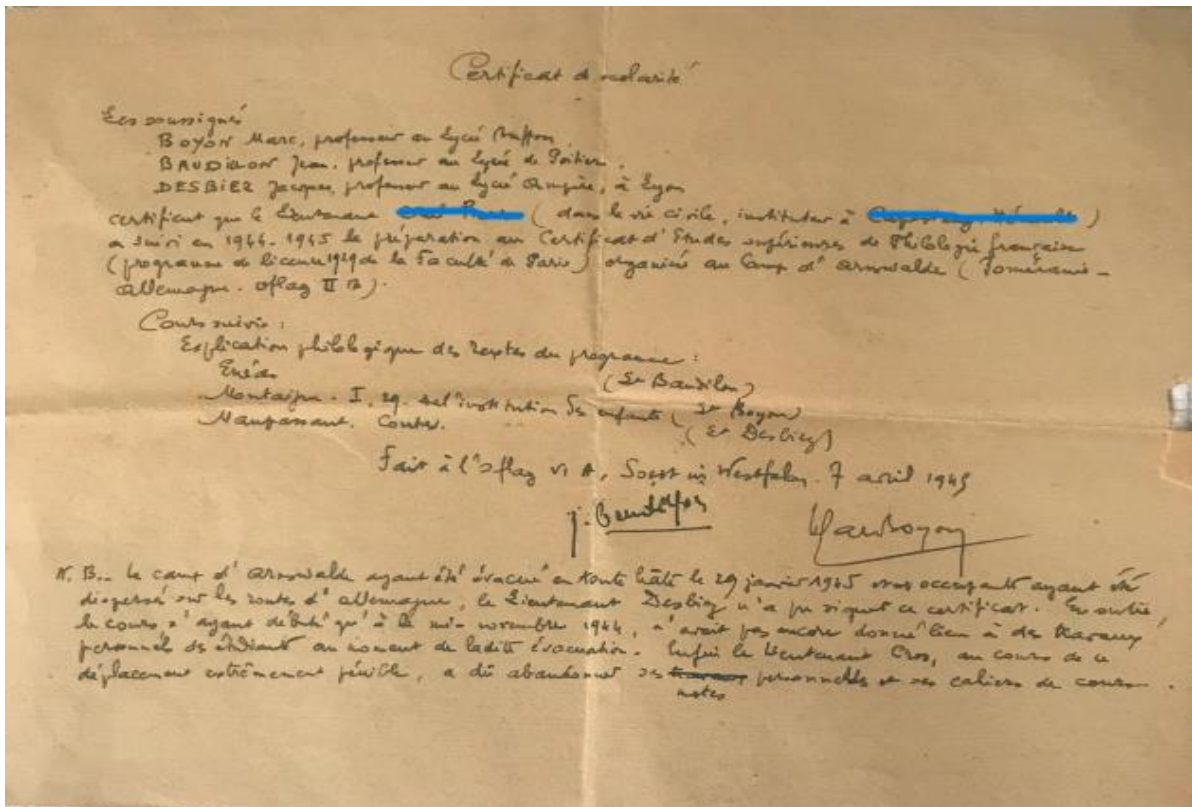 Certificat de scolarité
Les soussignés
BOYON Marc, professeur au Lycée Buffon
BAUDILON Jean, professeur au Lycée de Poitiers.
DESBIEZ Jacques, professeur au Lycée Ampère, à Lyon
certifient que le Lieutenant ( dans la vie civile, instituteur à )
a suivi en 1944-1945 la préparation au Certificat d'Etudes supérieures de Philologie française
(programme de licence 1939 de la Faculté de Paris) organisée au Camp d'Arnswalde ( Poméranie -
Allemagne. Oflag II B).
Cours suivis :
Explication philologique des Textes du programme :
Enéas (Lt Baudilon)
Montaigne. I, 29. de l'institution des enfants ( Lt Boyon)
Maupassant. Contes. ( Lt Desbiez)
Fait à l'Oflag VI A, Soest in Westfalen. 7 avril 1945
J. Baudilon Marc Boyon
N. B.. Le camp d'Arnswalde ayant été évacué en toute hâte le 29 janvier 1945 et ses occupants ayant été
dispersés sur les routes d'Allemagne, le Lieutenant Desbiez n'a pu signer ce certificat. En outre,
le cours n'ayant débuté qu'à la mi-novembre 1944, n'avait pas encore donné lieu à des travaux
personnels des étudiants au moment de ladite évacuation. Enfin le Lieutenant Cros, au cours de ce
déplacement extrêmement pénible, a dû abandonner ses travaux personnels et ses cahiers de cours.
notes